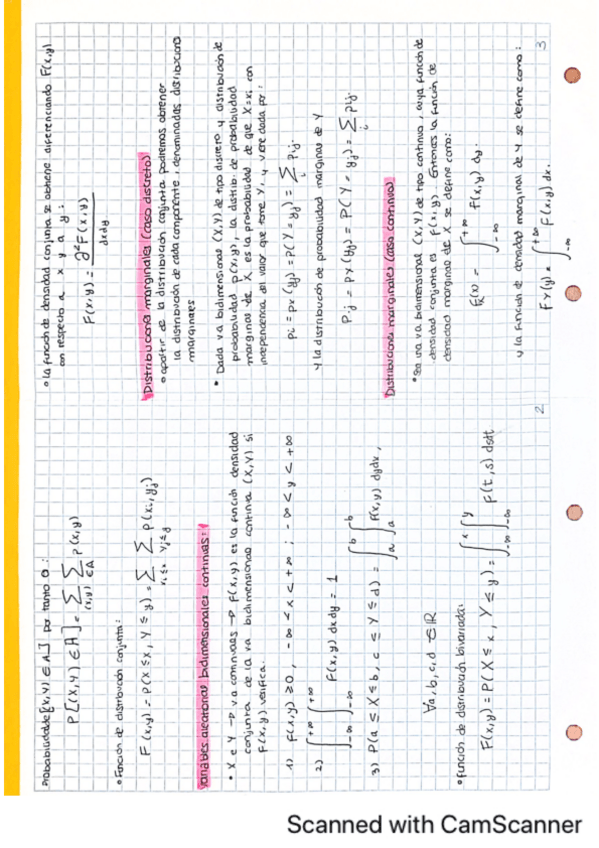 Probabilidad de [(X,Y) ∈ A] por tanto o:
P[(X,Y) ∈ A] = Σ Σ p(x,y)
(x,y) ∈ A
• Función de distribución conjunta:
F(x,y) = P(X ≤ x, Y ≤ y) = Σ Σ p(xi, yj)
xi ≤ x yj ≤ y
Variables aleatorias bidimensionales continuas:
• X e Y → va continuas → f(x,y) es la función densidad
conjunta de la va bidimensional continua (X,Y) si
f(x,y) verifica.
1) f(x,y) ≥ 0, -∞ < x < +∞ ; -∞ < y < +∞
2) ∫_{-∞}^{+∞} ∫_{-∞}^{+∞} f(x,y) dx dy = 1
3) P(a ≤ X ≤ b, c ≤ Y ≤ d) = ∫_a^b ∫_a^b f(x,y) dy dx,
∀a, b, c, d ∈ ℝ
• Función de distribución bivariada:
F(x,y) = P(X ≤ x, Y ≤ y) = ∫_{-∞}^{x} ∫_{-∞}^{y} f(t,s) ds dt
2
• La función de densidad conjunta se obtiene diferenciando F(x,y)
con respecto a x y a y:
f(x,y) = ∂²F(x,y)
dxdy
Distribuciones marginales (caso discreto)
• a partir de la distribución conjunta podremos obtener
la distribución de cada componente, denominadas distribuciones
marginales
• Dada va bidimensional (X,Y) de tipo discreto y distribución de
probabilidad p(x,y), la distrib. de probabilidad
marginal de X es la probabilidad de que X=xi, con
independencia del valor que tome Y, y viene dada por:
Pi = px(yj) = P(Y = yj) = Σ pij.
y la distribución de probabilidad marginal de Y
P.j = px(yj) = P(Y = yj) = Σ pij.
i
Distribuciones marginales (caso continuo)
• Sea una va bidimensional (X,Y) de tipo continuo, cuya función de
densidad conjunta es f(x,y). Entonces la función de
densidad marginal de X se define como:
fx(x) = ∫_{-∞}^{+∞} f(x,y) dy.
y la función de densidad marginal de Y se define como:
fY(y) = ∫_{-∞}^{+∞} f(x,y) dx.
3
Scanned with CamScanner